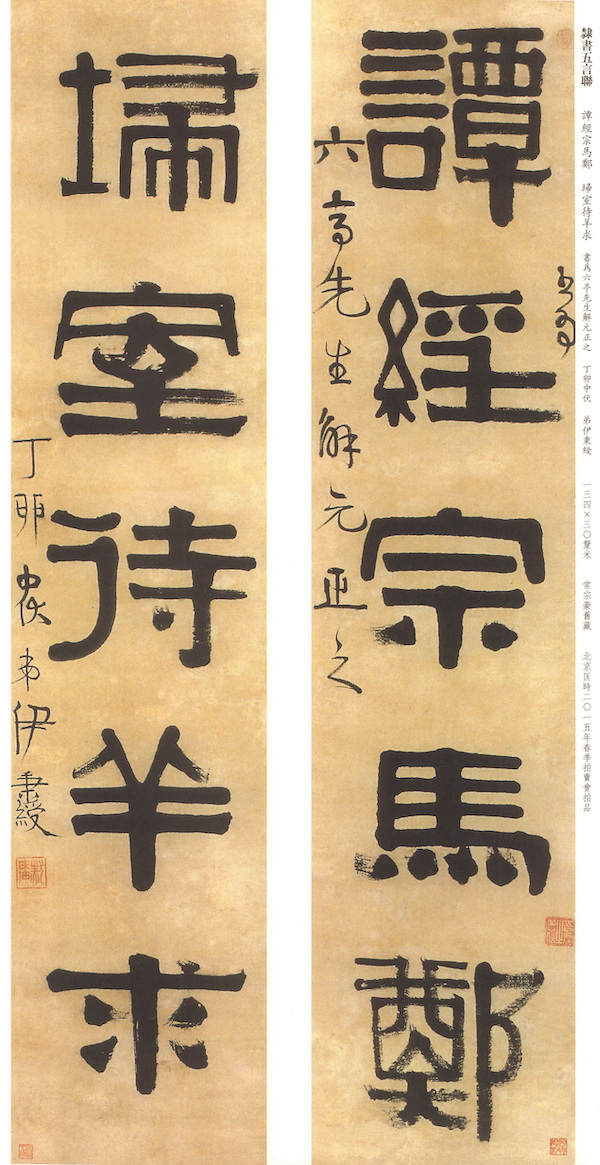 隸書五言聯　譚經宗馬鄭　埽室待羊求　書爲六亭先生解元正之　丁卯中伏　弟伊秉綬　一三四×三〇釐米　常宗豪舊藏　北京匡時二〇一五年春季拍賣會拍品
書爲
譚經宗馬鄭
六亭先生解元正之
埽室待羊求
丁卯中伏弟伊秉綬